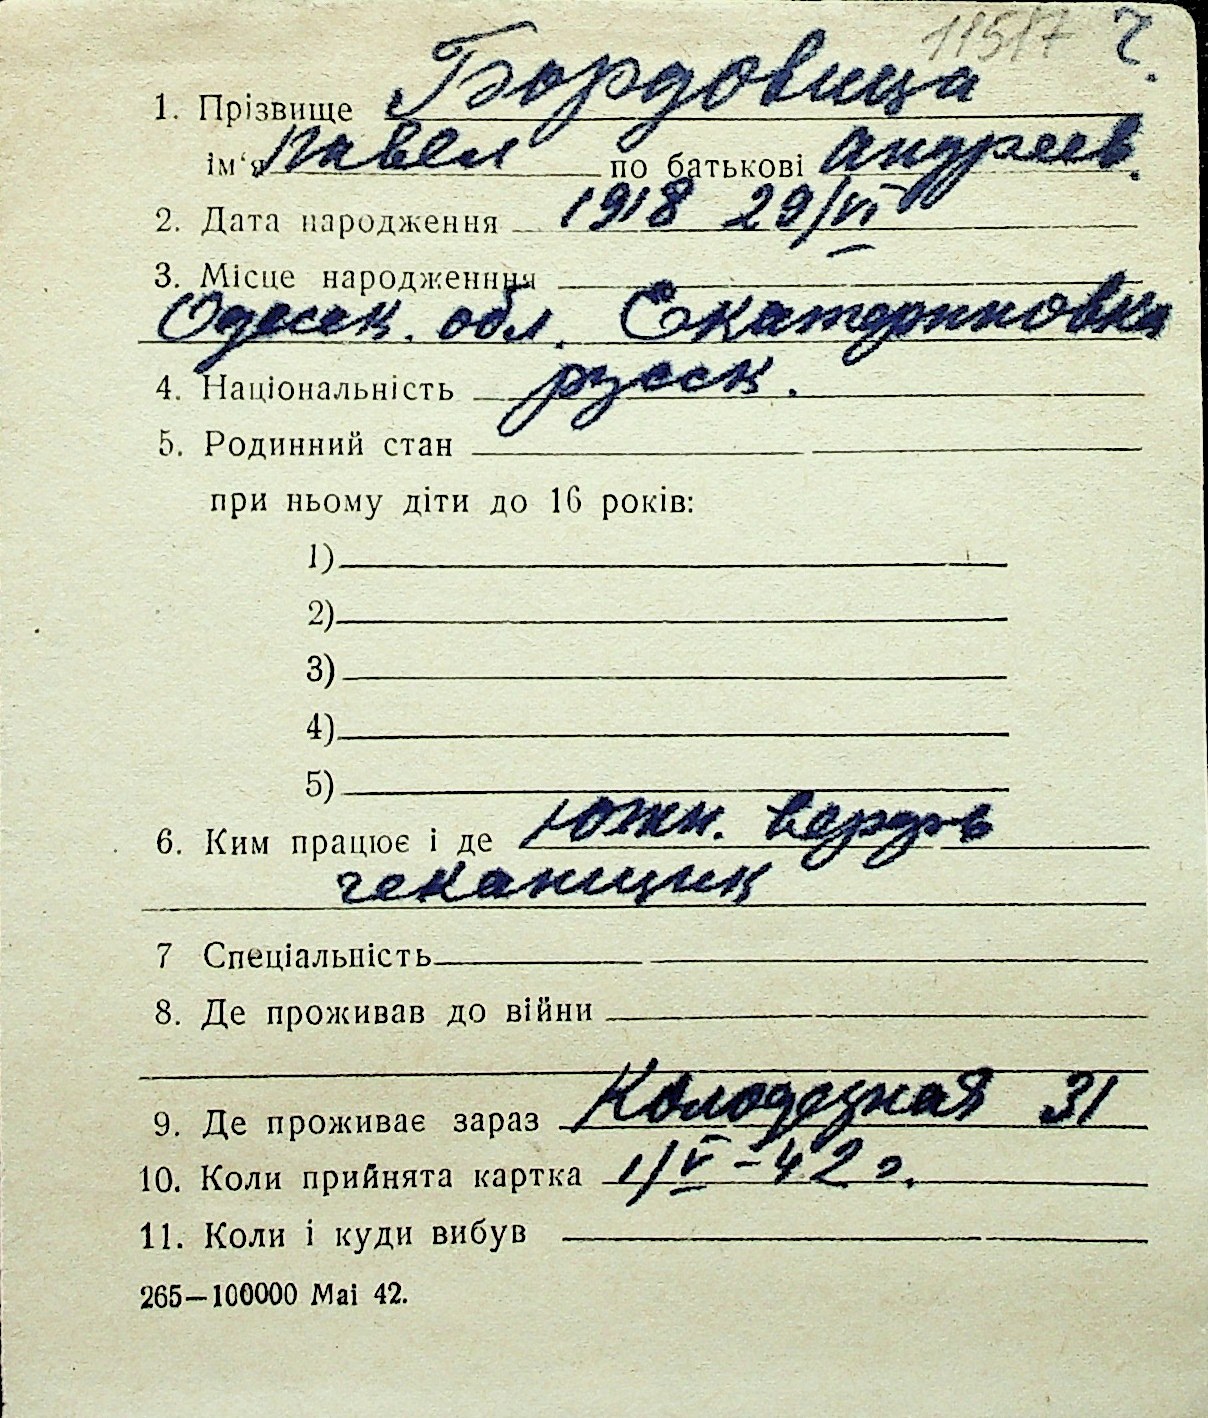 11517 Ч.
1. Прізвище Бордовица
ім'я Павел по батькові Андреев.
2. Дата народження 1918 29/VI
3. Місце народженння
Одесск. обл. Екатериновка
4. Національність русск.
5. Родинний стан
при ньому діти до 16 років:
1)
2)
3)
4)
5)
6. Ким працює і де Южн. верфь
чеканщик
7 Спеціальність
8. Де проживав до війни
9. Де проживає зараз Колодезная 31
10. Коли прийнята картка 1/V-42 г.
11. Коли і куди вибув
265—100000 Маі 42.